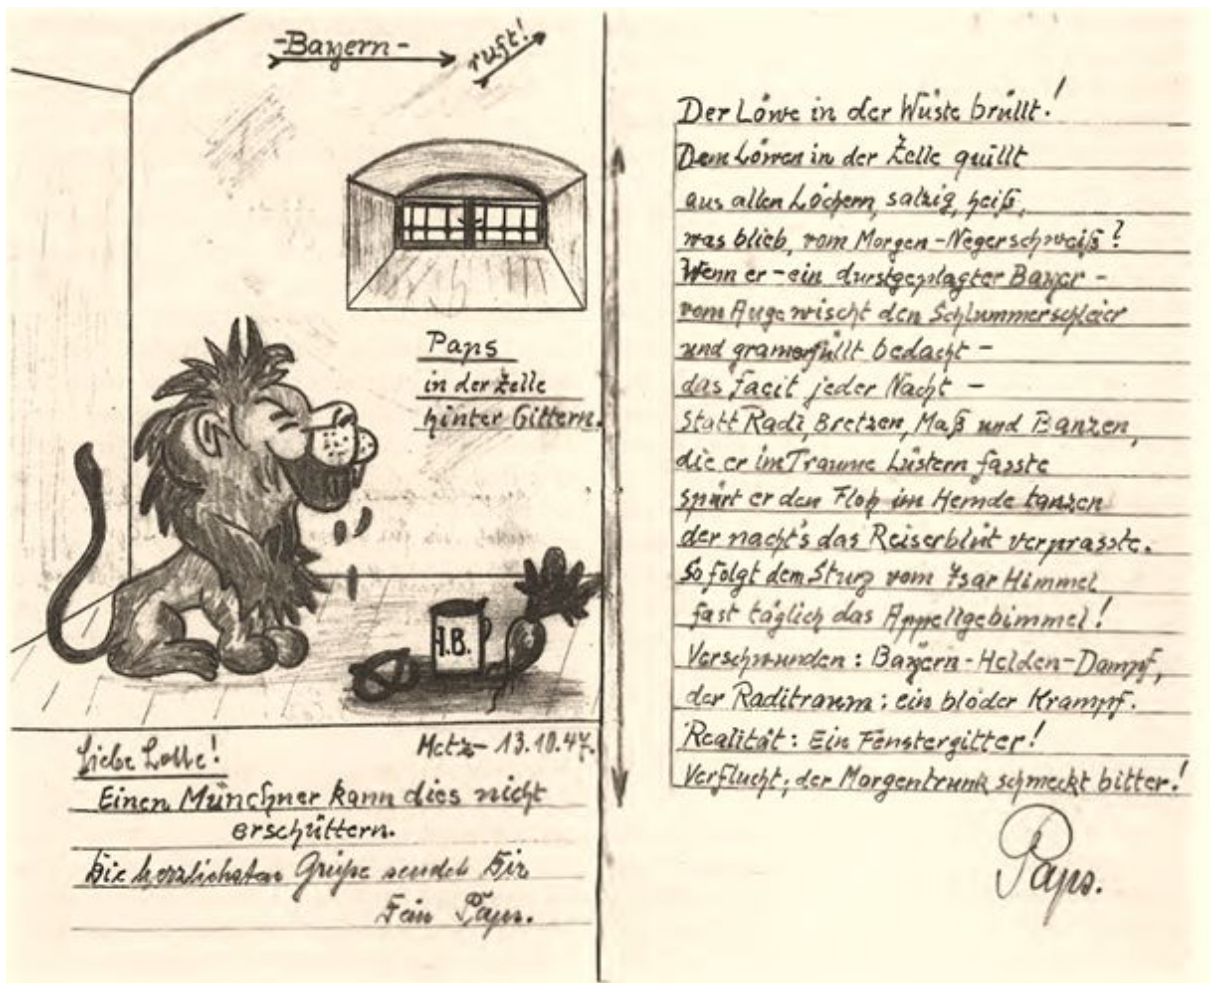 -Bayern-
ruft!
Paps
in der Zelle
hinter Gittern.
H.B.
Liebe Lotte!
Metz- 13.10.47.
Einen Münchner kann dies nicht
erschüttern.
Die herzlichsten Grüße sendet Dir
Dein Paps.
Der Löwe in der Wüste brüllt!
Dem Löwen in der Zelle quillt
aus allen Löchern, salzig, heiß,
was blieb, vom Morgen-Negerschweiß?
Wenn er - ein durstgeplagter Bayer -
vom Auge wischt den Schlummerschleier
und gramerfüllt bedacht -
das facit jeder Nacht -
Statt Radi, Bretzen, Maß und Banzen,
die er im Traume Lüstern fasste
spürt er den Floh im Hemde tanzen
der nacht's das Reiserblut verprasste.
So folgt dem Sturz vom Isar Himmel
fast täglich das Appellgebimmel!
Verschwunden: Bayern-Helden-Dampf,
der Raditraum: ein blöder Krampf.
Realität: Ein Fenstergitter!
Verflucht; der Morgentrunk schmeckt bitter!
Paps.